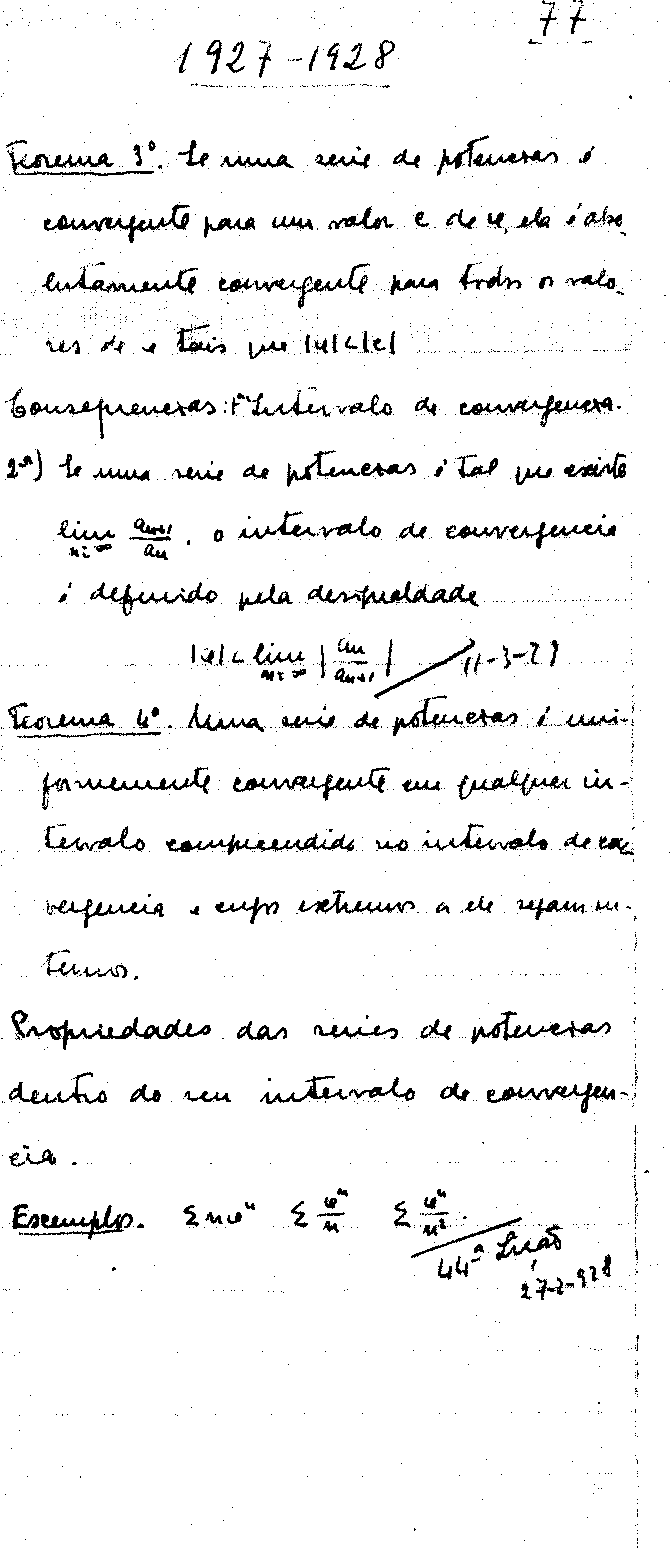 77
1927-1928
Teorema 3º. Se uma serie de potencias é
convergente para um valor c de x, ela é abso
lutamente convergente para todos os valo-
res de x tais que |x|<|c|
Consequencias: 1ª Intervalo de convergencia.
2ª) Se uma serie de potencias é tal que existe
lim n=∞ a_{n+1}/a_n, o intervalo de convergencia
é definido pela desigualdade
|x| < lim n=∞ |a_n/a_{n+1}| 11-3-29
Teorema 4º. Uma serie de potencias é uni-
formemente convergente em qualquer in-
tervalo compreendido no intervalo de con
vergencia e cujos extremos a ele sejam in-
ternos.
Propriedades das series de potencias
dentro do seu intervalo de convergen-
cia.
Exemplos. Σnxⁿ Σ xⁿ/n Σ xⁿ/n².
44ª Lição
27-2-928